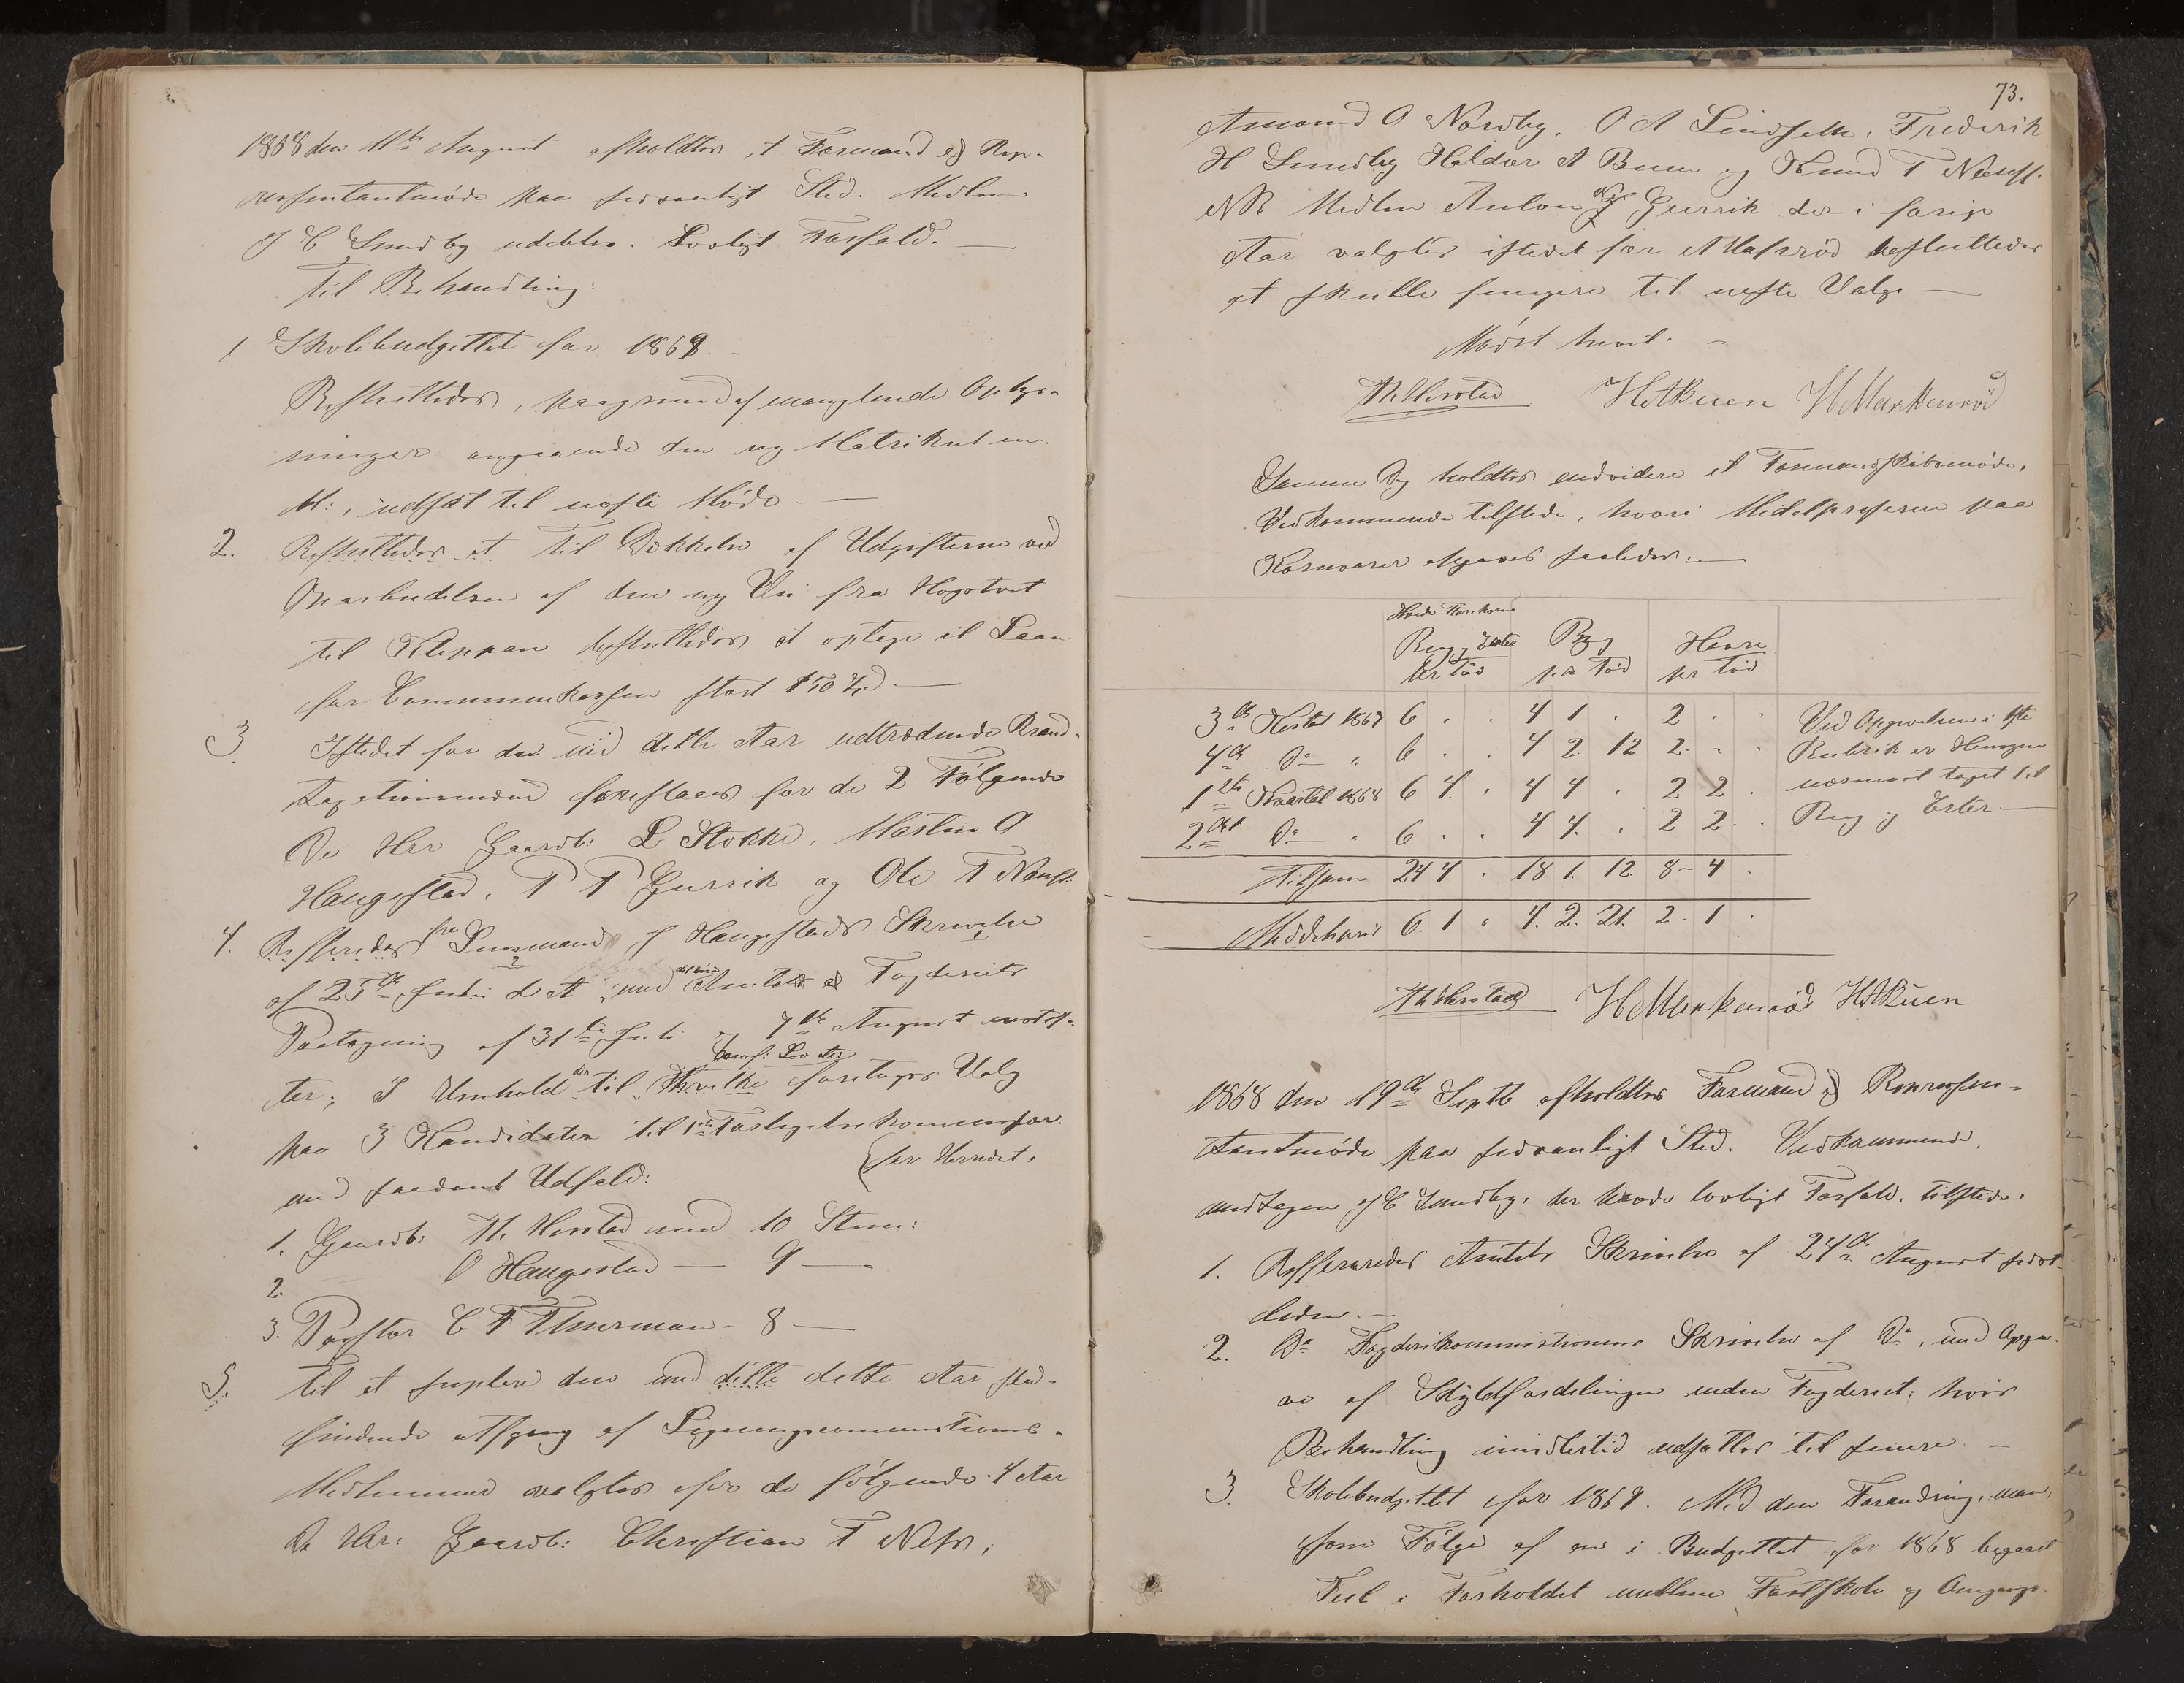 1868 den 11te August afholdtes et Formand og Rep-
ræsentantmöde paa sedvanligt Sted. Medlem
J C Sundby udeblev. Lovligt Forfald. —
Til Behandling:
1 Skolebudgettet for 1869. -
Besluttedes, paagrund af manglende Oplys-
ninger angaaende den ny Matrikul m.
M:, udsat til neste Möde —
2. Besluttedes at til Dækkelse af Udgifterne ved
Oparbeidelsen af den ny Vei fra Hogstvet
til Kleppan besluttedes at optage et Laan
for Communekassen stort 150 Spd. —
3 Istedet for de med dette Aar udtrædende Brand-
taxtionsmænd foreslaaes for de 2 Fölgende
De Hrr Gaardb: L Stokke, Martin O
Haugestad, P P Gurrik og Ole T
4. Refferedes fra Lensmand J Haugestads Skrivelse
af 25de Juli d A, med Amtets og Fogderiets
Paategning af 31te Juli og 7de August
ter; I Henhold der til foretoges Valg
paa 3 Kandidater til Forligelseskommissær
med saadant Udfald: (for Herredet.
1. Gaardb: Th. Herstad med 10 Stem:
2. O Haugestad — 9 —
3. Pastor C F Thurman - 8 —
5. Til at suplere den med dette dette Aar sted-
findende Afgang af Ligningscommissions-
Medlemmer valgtes for de fölgende 4 Aar
De Hrr: Gaardb: Christian T Næss,
73.
Amund O Nordby, O A Lindsette, Frederik
H Sundby Haldor A Buen og Knud T
NB Medlem Anton Gurrik der i forige
Aar valgtes istedet for A besluttedes
at skulle fungere til neste Valg —
Mödet hævet. -
Th Herstad HABuen HMarkenröd
Samme Dag holdtes endvidere et Formandskabsmöde,
Vedkommende tilstede, hvori Middelpriserne paa
Kornvarer opgaves saaledes: —
Hvede
Rug Erter Byg Havre
pr Töd pr Töd pr Töd
3de Kvartal 1867 6 . . 4 1 . 2 . . Ved Opgivelsen i 1ste
4de Do " 6 . . 4 2. 12 2. . . Rubrik er Hensyn
1ste Kvartal 1868 6 4. . 4 4 . 2 2. nærmest taget til
2det Do " 6 . . 4 4. . 2 2. . Rug og Erter —
Tilsam 24 4 . 18 1. 12 8 - 4 .
Middelpriis 6. 1 " 4. 2. 21. 2. 1 .
Th Herstad HMarkenröd HABuen
1868 den 19de Septb afholdtes Formand og Repræsen-
tantmöde paa sedvanligt Sted. Vedkommende,
undtagen J C Sundby, der havde lovligt Forfald, tilstede.
1. Reffereredes Amtets Skrivelse af 24de August sidst-
leden. —
2. Do Fogderikommissionens Skrivelse af Do, med Opga-
ve af Skyldfordelingen inden Fogderiet; hvis
Behandling imidlertid udsattes til senere. —
3. Skolebudgettet for 1869. Med den Forandring, man,
som Fölge af en i Budgettet for 1868 begaaet
Feil i Forholdet mellem Fastskole og Omgangs-